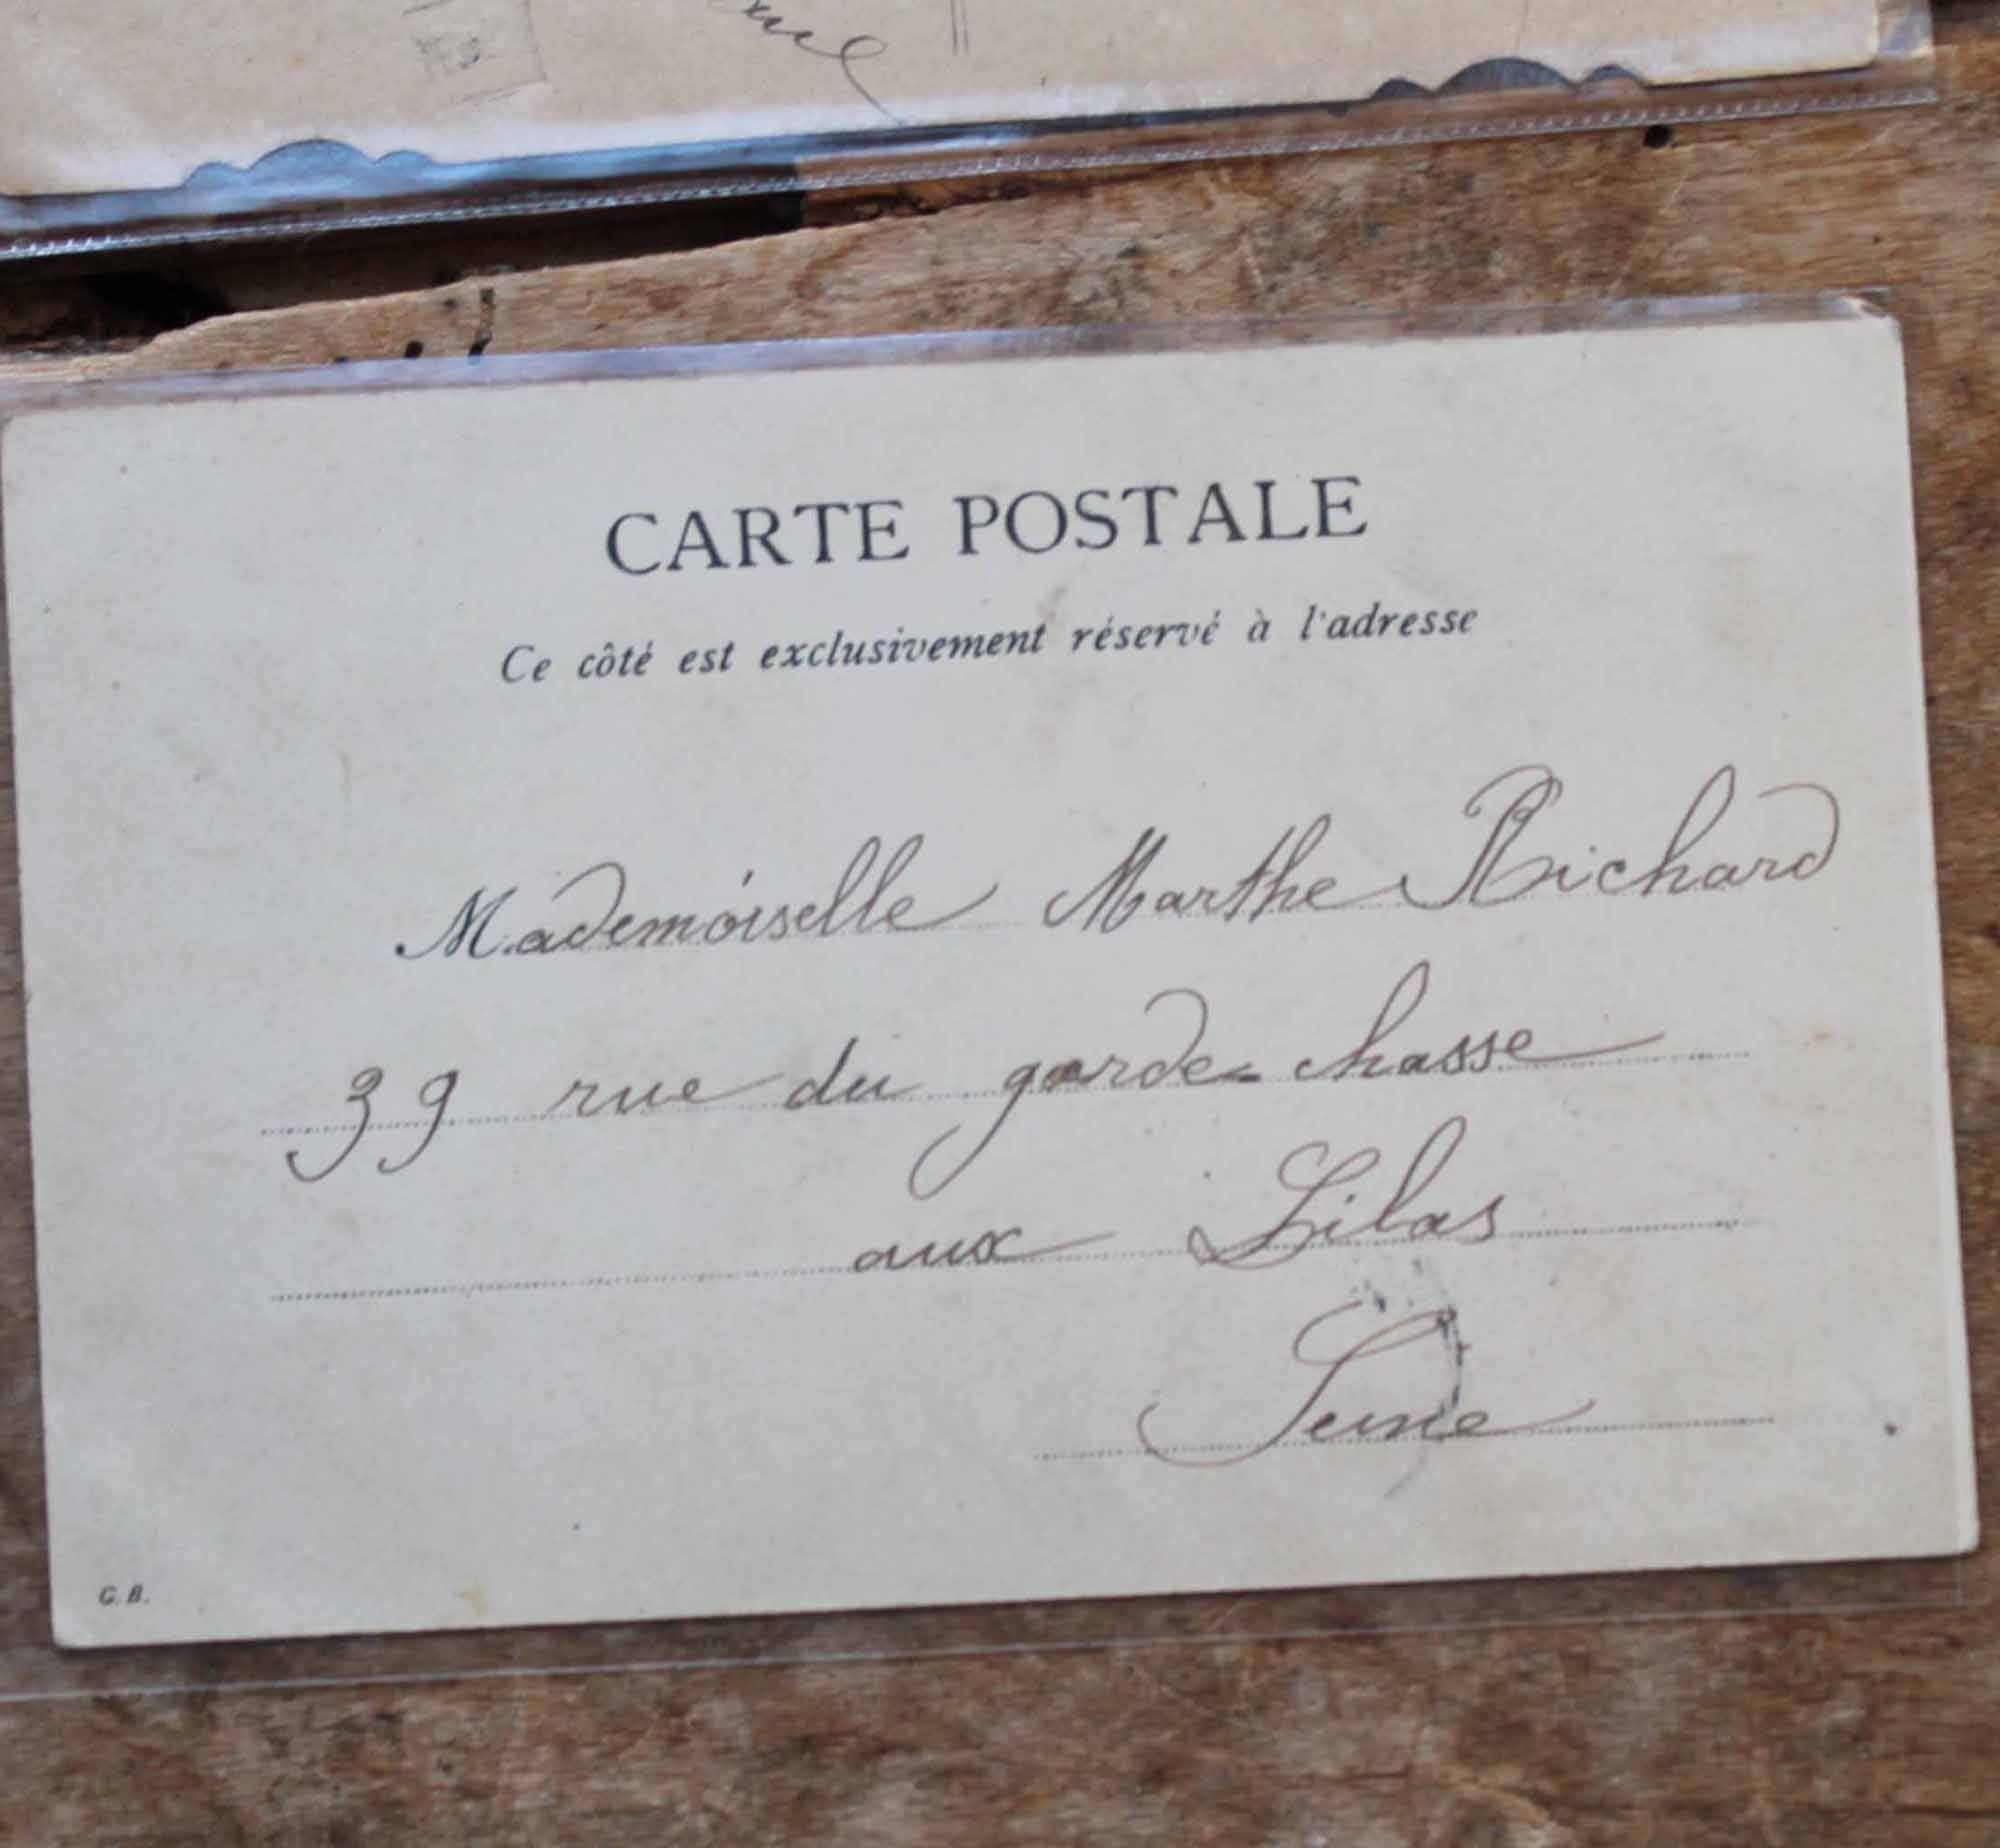 CARTE POSTALE
Ce côté est exclusivement réservé à l'adresse
Mademoiselle Marthe Richard
39 rue du garde-chasse
aux Lilas
Seine
G. B.